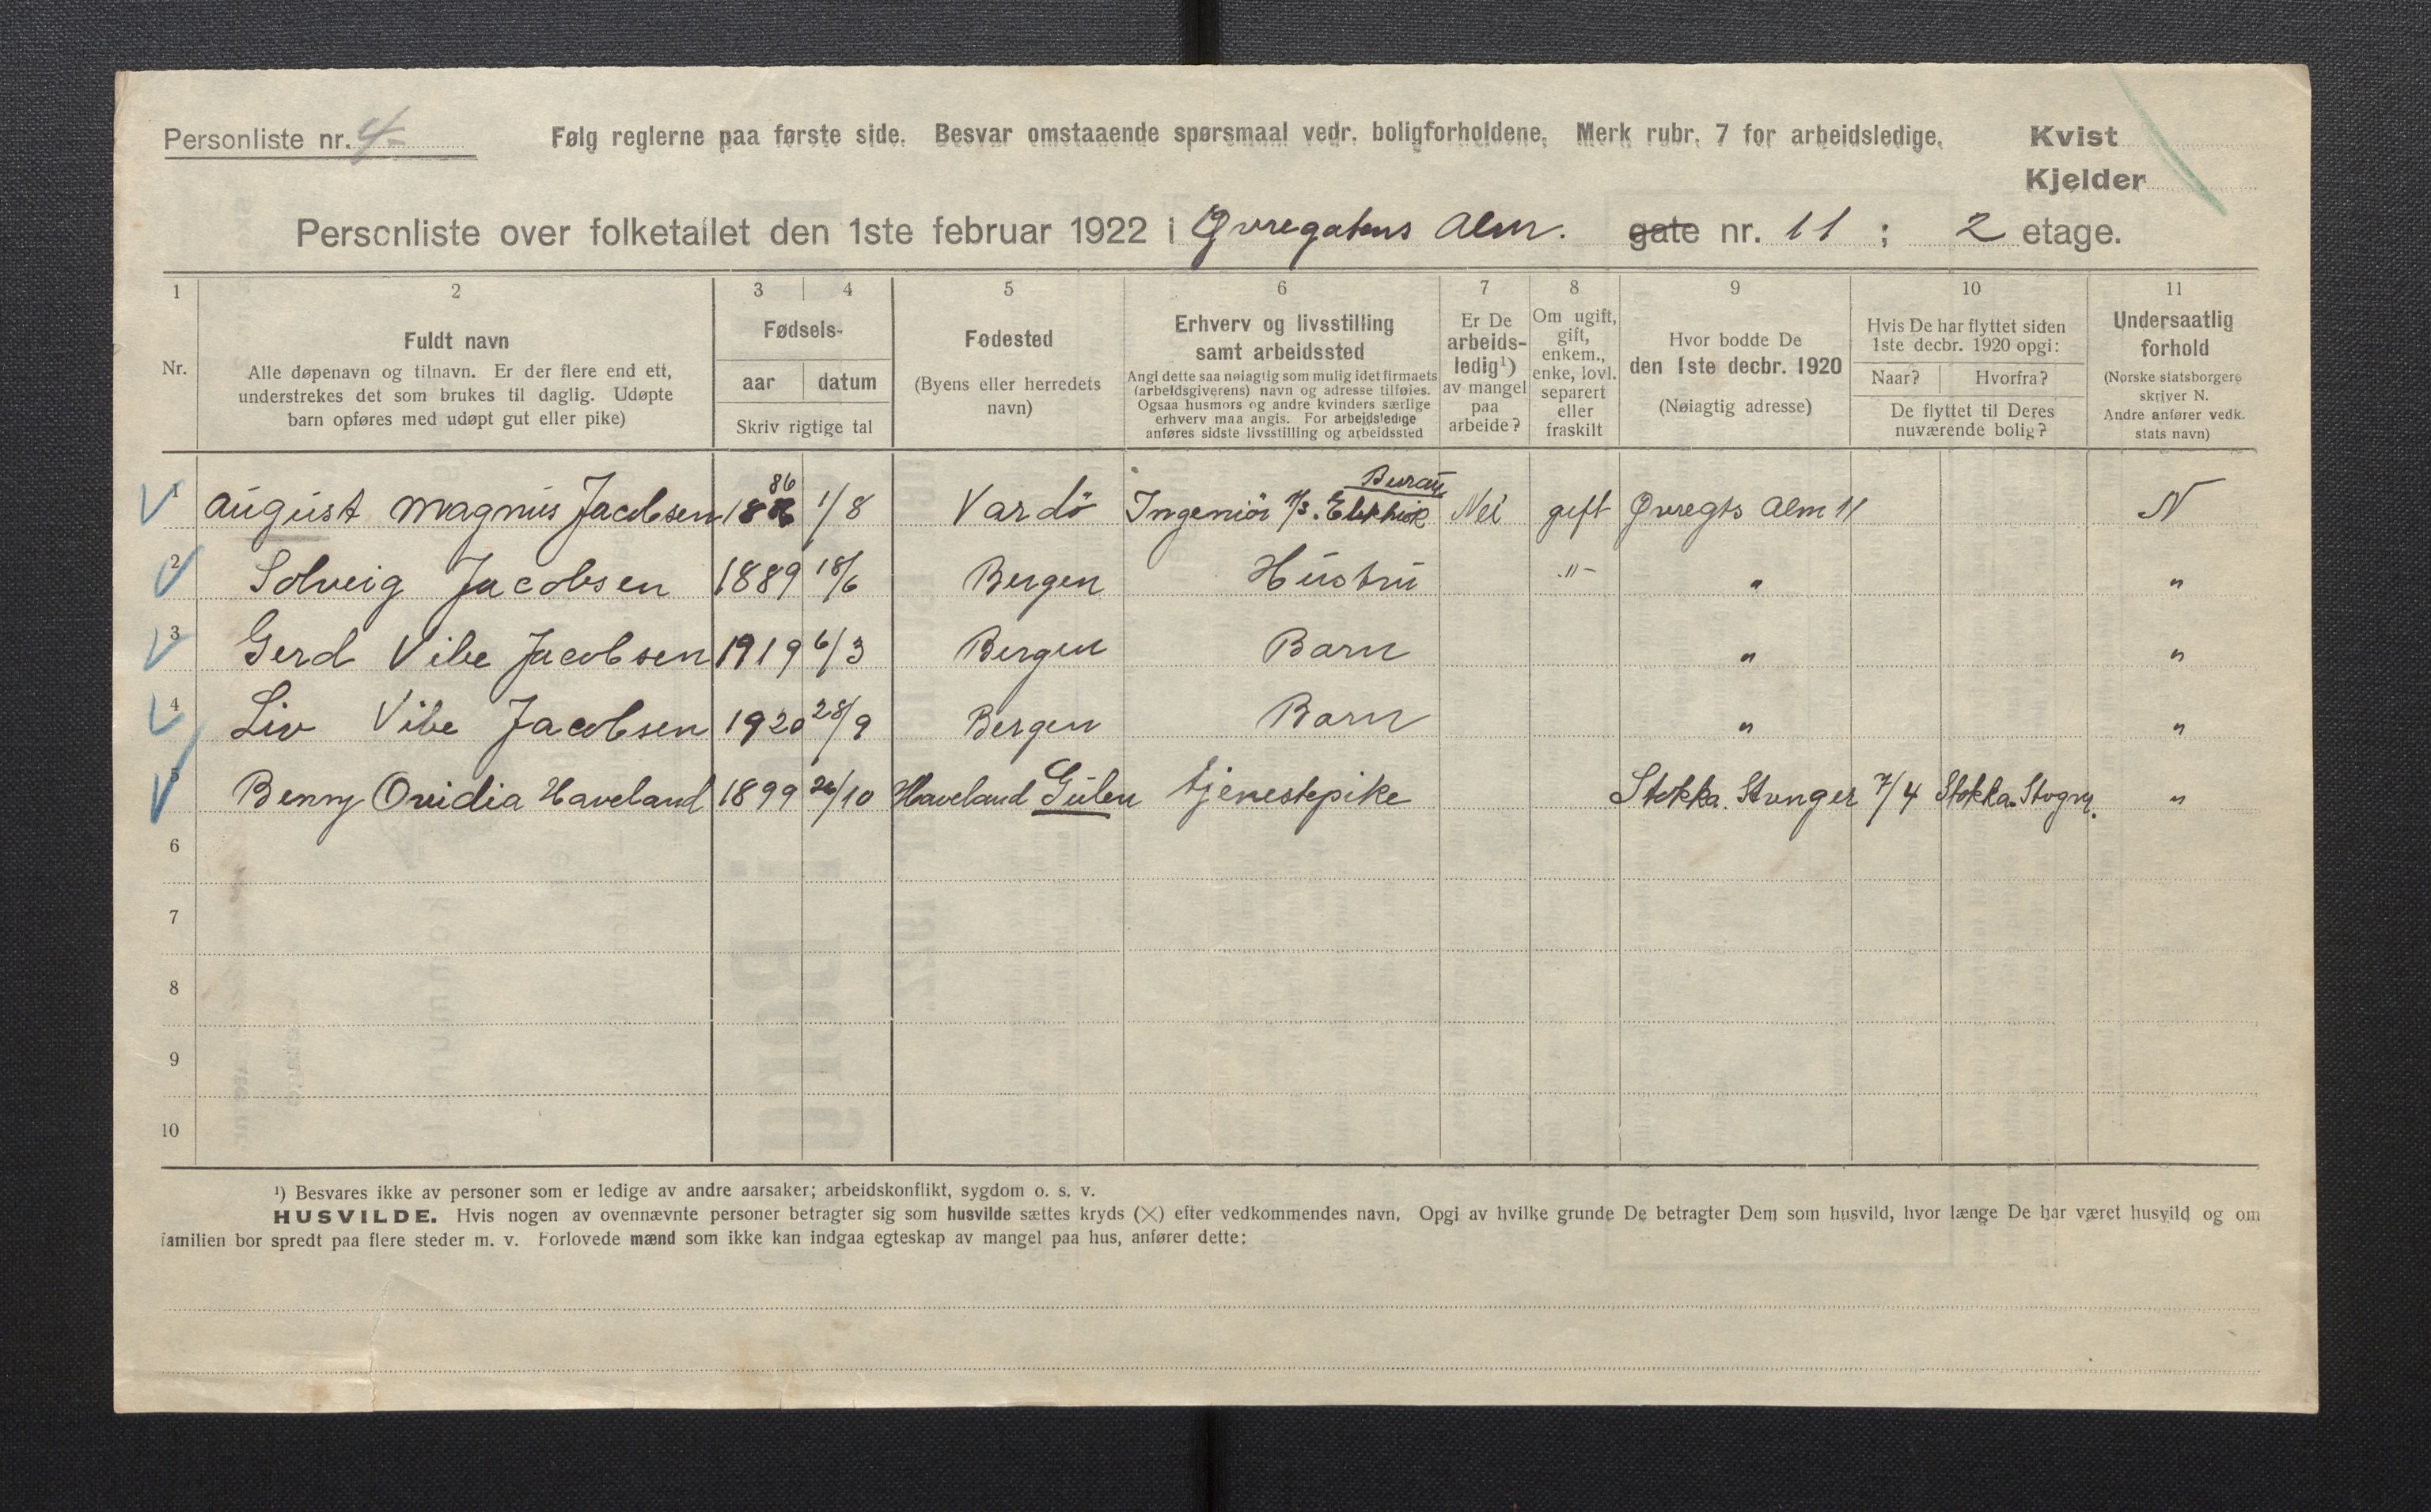 Personliste nr. 4 Følg reglerne paa første side. Besvar omstaaende spørsmaal vedr. boligforholdene. Merk rubr. 7 for arbeidsledige. Kvist
Kjelder
Personliste over folketallet den 1ste februar 1922 i Øvregatens Alm. gate nr. 11 ; 2 etage.
1 2 3 4 5 6 7 8 9 10 11
Nr.
Fuldt navn
Alle døpenavn og tilnavn. Er der flere end ett,
understrekes det som brukes til daglig. Udøpte
barn opføres med udøpt gut eller pike)
Fødsels-
aar datum
Skriv rigtige tal
Fødested
(Byens eller herredets
navn)
Erhverv og livsstilling
samt arbeidssted
Angi dette saa nøiagtig som mulig idet firmaets
(arbeidsgiverens) navn og adresse tilføies.
Ogsaa husmors og andre kvinders særlige
erhverv maa angis. For arbeidsledige
anføres sidste livsstilling og arbeidssted
Er De
arbeids-
ledig¹)
av mangel
paa
arbeide?
Om ugift,
gift,
enkem.,
enke, lovl.
separert
eller
fraskilt
Hvor bodde De
den 1ste decbr. 1920
(Nøiagtig adresse)
Hvis De har flyttet siden
1ste decbr. 1920 opgi:
Naar? Hvorfra?
De flyttet til Deres
nuværende bolig?
Undersaatlig
forhold
(Norske statsborgere
skriver N.
Andre anfører vedk.
stats navn)
1 August Magnus Jacobsen 1886 1/8 Vardö Ingeniör A/S. Elektrisk Bureau Nei gift Øvregts Alm 11 N
2 Solveig Jacobsen 1889 18/6 Bergen Hustru -"- " "
3 Gerd Vibe Jacobsen 1919 6/3 Bergen Barn " "
4 Liv Vibe Jacobsen 1920 28/9 Bergen Barn " "
5 Benny Ovidia Haveland 1899 26/10 Haveland Gulen tjenestepike Stokka. Stvnger 7/4 Stokka. "
6
7
8
9
10
¹) Besvares ikke av personer som er ledige av andre aarsaker; arbeidskonflikt, sygdom o. s. v.
HUSVILDE. Hvis nogen av ovennævnte personer betragter sig som husvilde sættes kryds (×) efter vedkommendes navn. Opgi av hvilke grunde De betragter Dem som husvild, hvor længe De har været husvild og om
familien bor spredt paa flere steder m. v. Forlovede mænd som ikke kan indgaa egteskap av mangel paa hus, anfører dette: